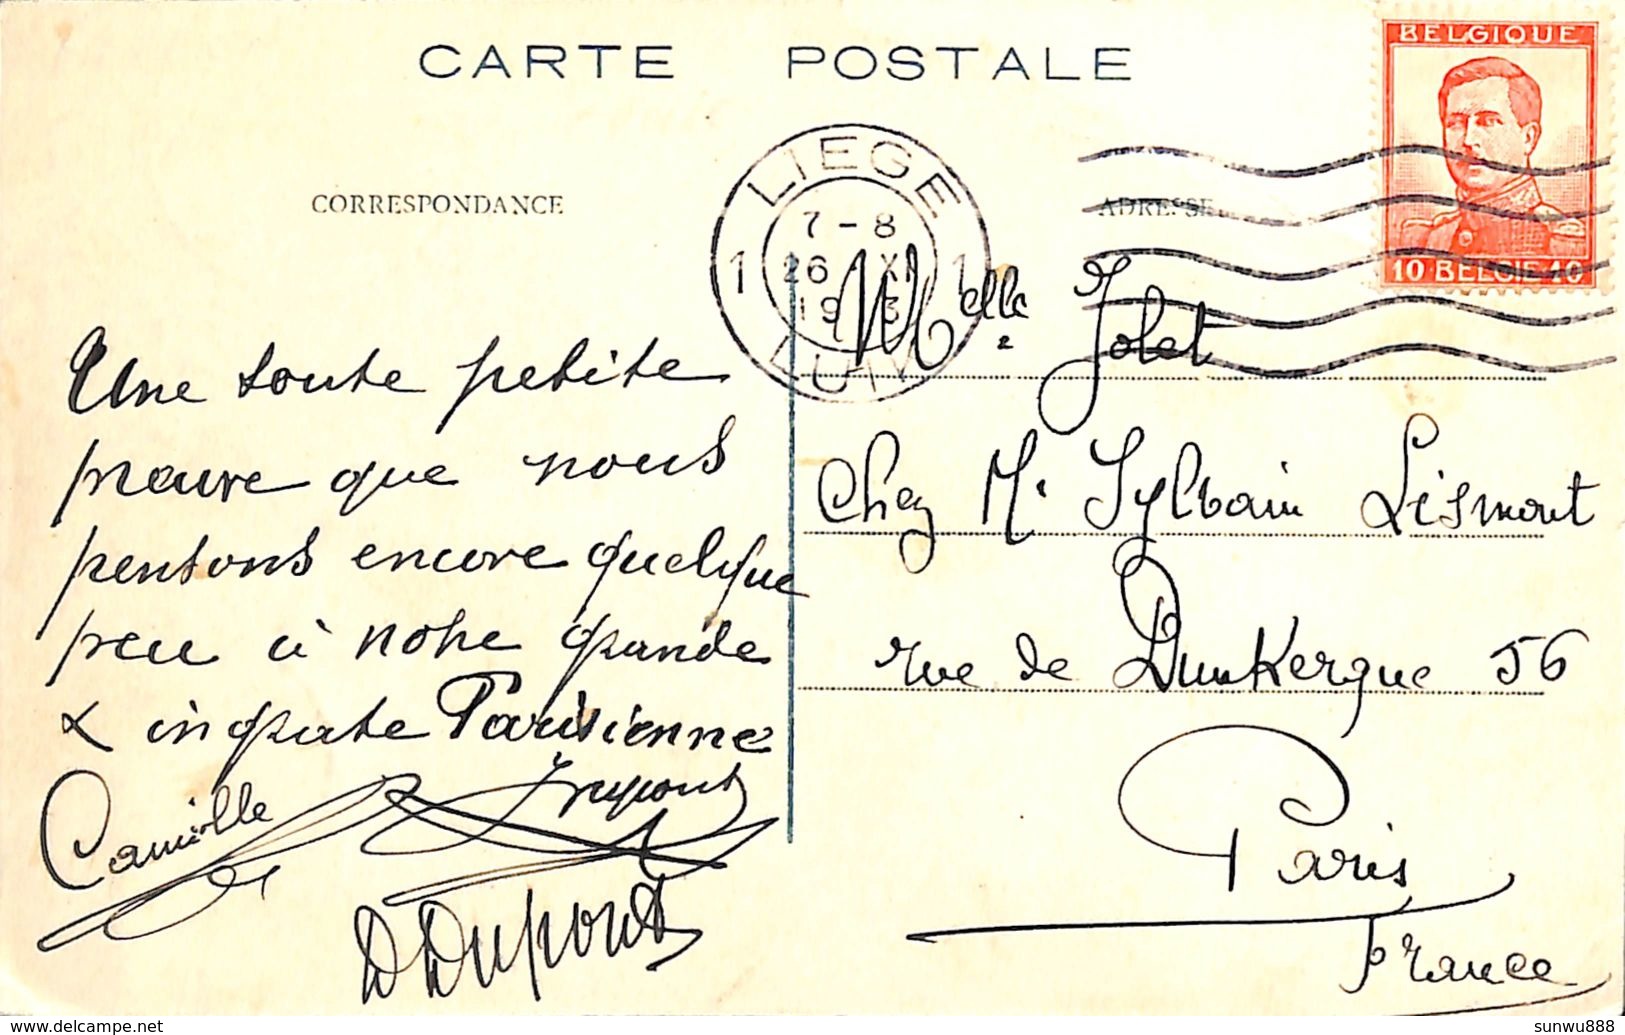 CARTE POSTALE
BELGIQUE
10 BELGIE 10
LIEGE
7 - 8
1 26 XI 1
19 3
CORRESPONDANCE
ADRESSE
Une toute petite
preuve que nous
pensons encore quelque
peu à notre grande
& ingrate Parisienne
Camille
Dupont
D Dupont
Melle Jolet
Chez Mr Sylvain Lismont
rue de Dunkerque 56
Paris
France
delcampe.net
sunwu888